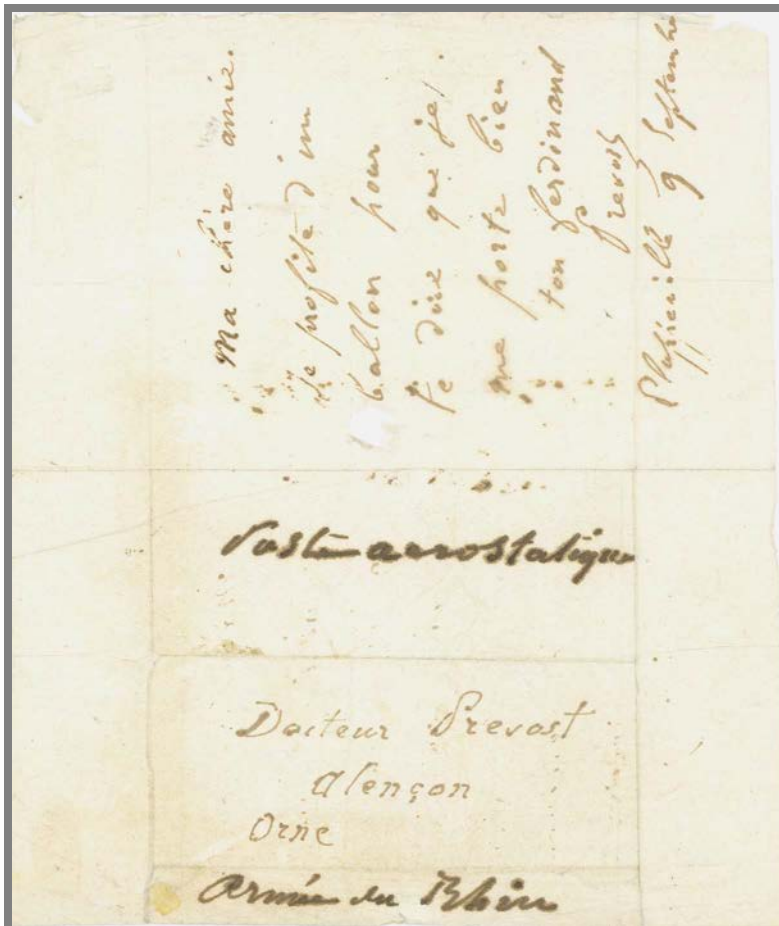 Ma chère amie.
Je profite d'un
ballon pour
te dire que je
me porte bien
ton ferdinand
Prevost
Plappeville 9 Septembre
Poste aerostatique
Docteur Prevost
Alençon
Orne
Armée du Rhin